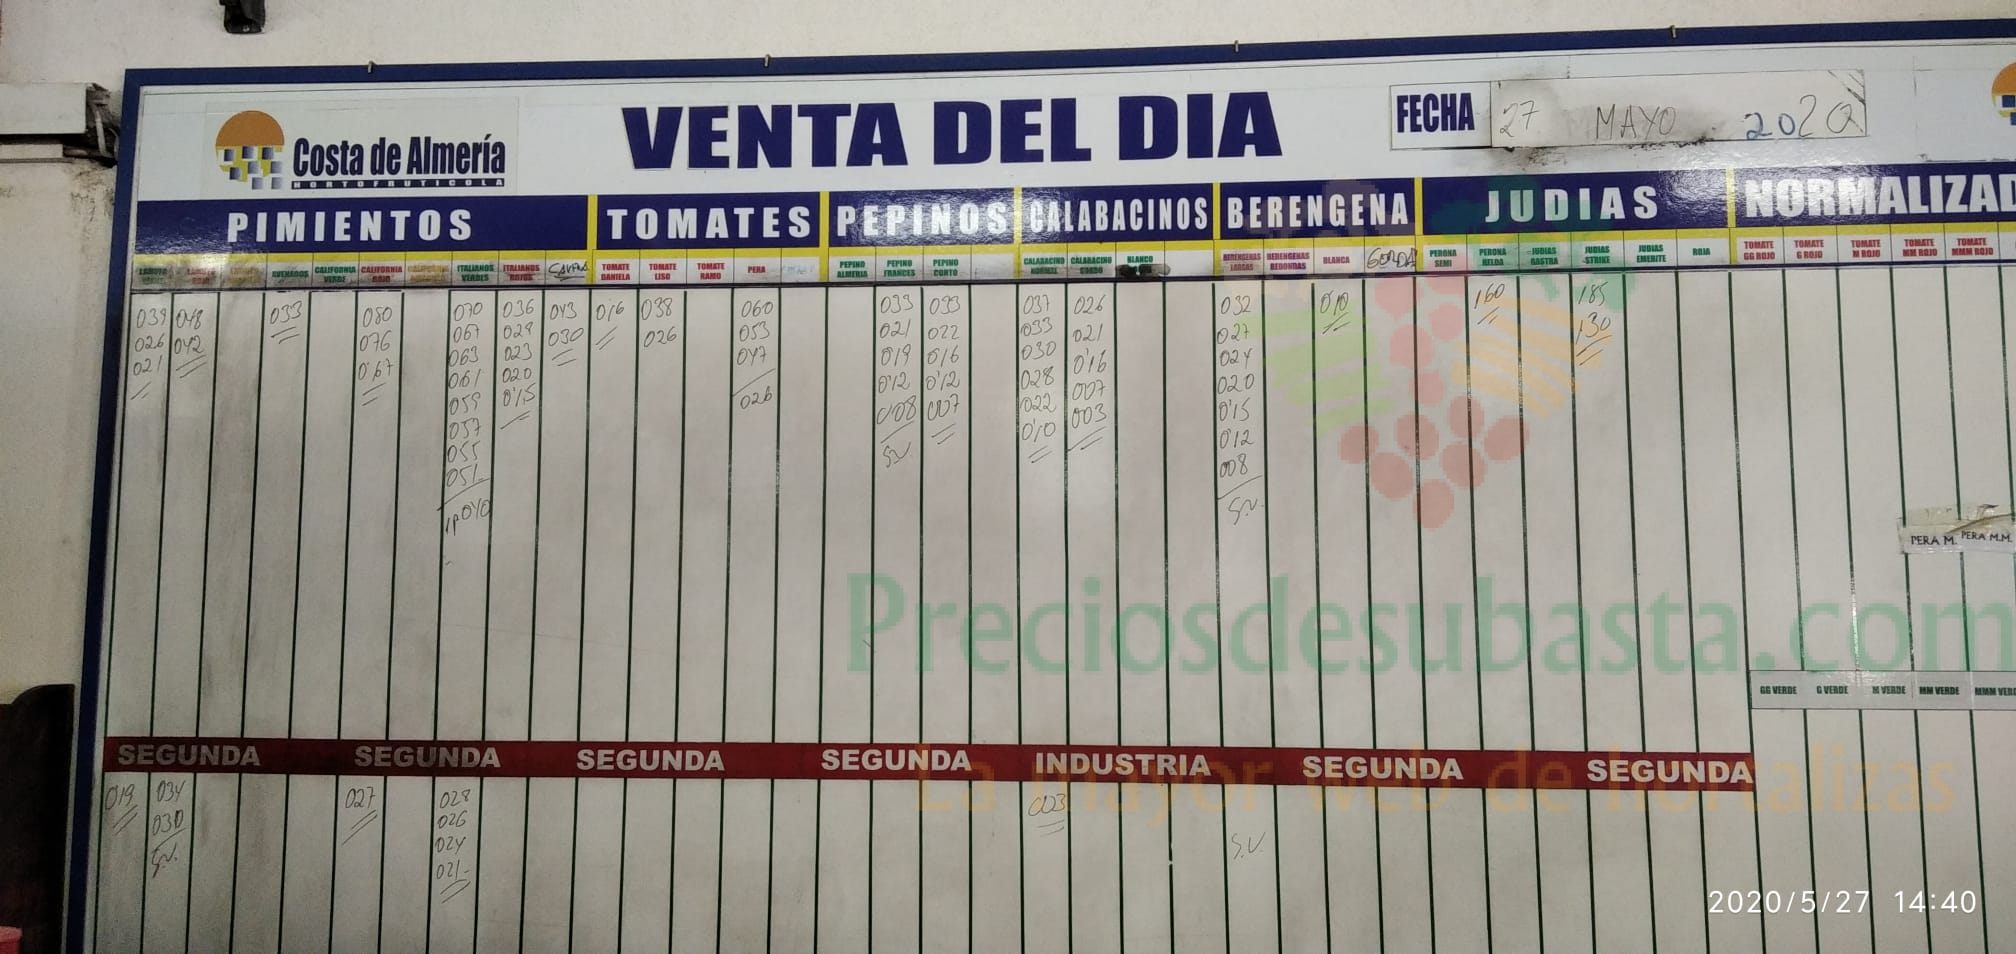 Costa de Almería
HORTOFRUTICOLA
VENTA DEL DIA
FECHA 27 MAYO 2020
PIMIENTOS TOMATES PEPINOS CALABACINOS BERENGENA JUDIAS NORMALIZAD
CALIFORNIA VERDE CALIFORNIA ROJO ITALIANOS VERDES ITALIANOS ROJOS TOMATE DANIELA TOMATE LISO TOMATE RAMO PERA PEPINO ALMERIA PEPINO FRANCES PEPINO CORTO CALABACINO NORMAL CALABACINO GORDO BLANCO BERENGENAS LARGAS BERENGENAS REDONDAS BLANCA GORDA PERONA SEMI PERONA HELDA JUDIAS RASTRA JUDIAS STRIKE JUDIAS EMERITE ROJA TOMATE GG ROJO TOMATE G ROJO TOMATE M ROJO TOMATE MM ROJO TOMATE MMM ROJO
039 048 033 080 070 036 043 016 038 060 033 033 037 026 032 010 160 185
026 042 076 067 029 030 026 053 021 022 033 021 027 130
021 0'67 063 023 047 019 016 030 0'16 024
061 020 026 0'12 0'12 028 007 020
059 0'15 008 007 022 003 0'15
057 S.V. 0'10 0'12
055 008
051 S.V.
1P040
PERA M. PERA M.M.
Preciosdesubasta.com
GG VERDE G VERDE M VERDE MM VERDE MMM VERD
SEGUNDA SEGUNDA SEGUNDA SEGUNDA INDUSTRIA SEGUNDA SEGUNDA
La mayor web de hortalizas
019 034 027 028 003
030 026
S.V. 024 S.V.
021
2020/5/27 14:40